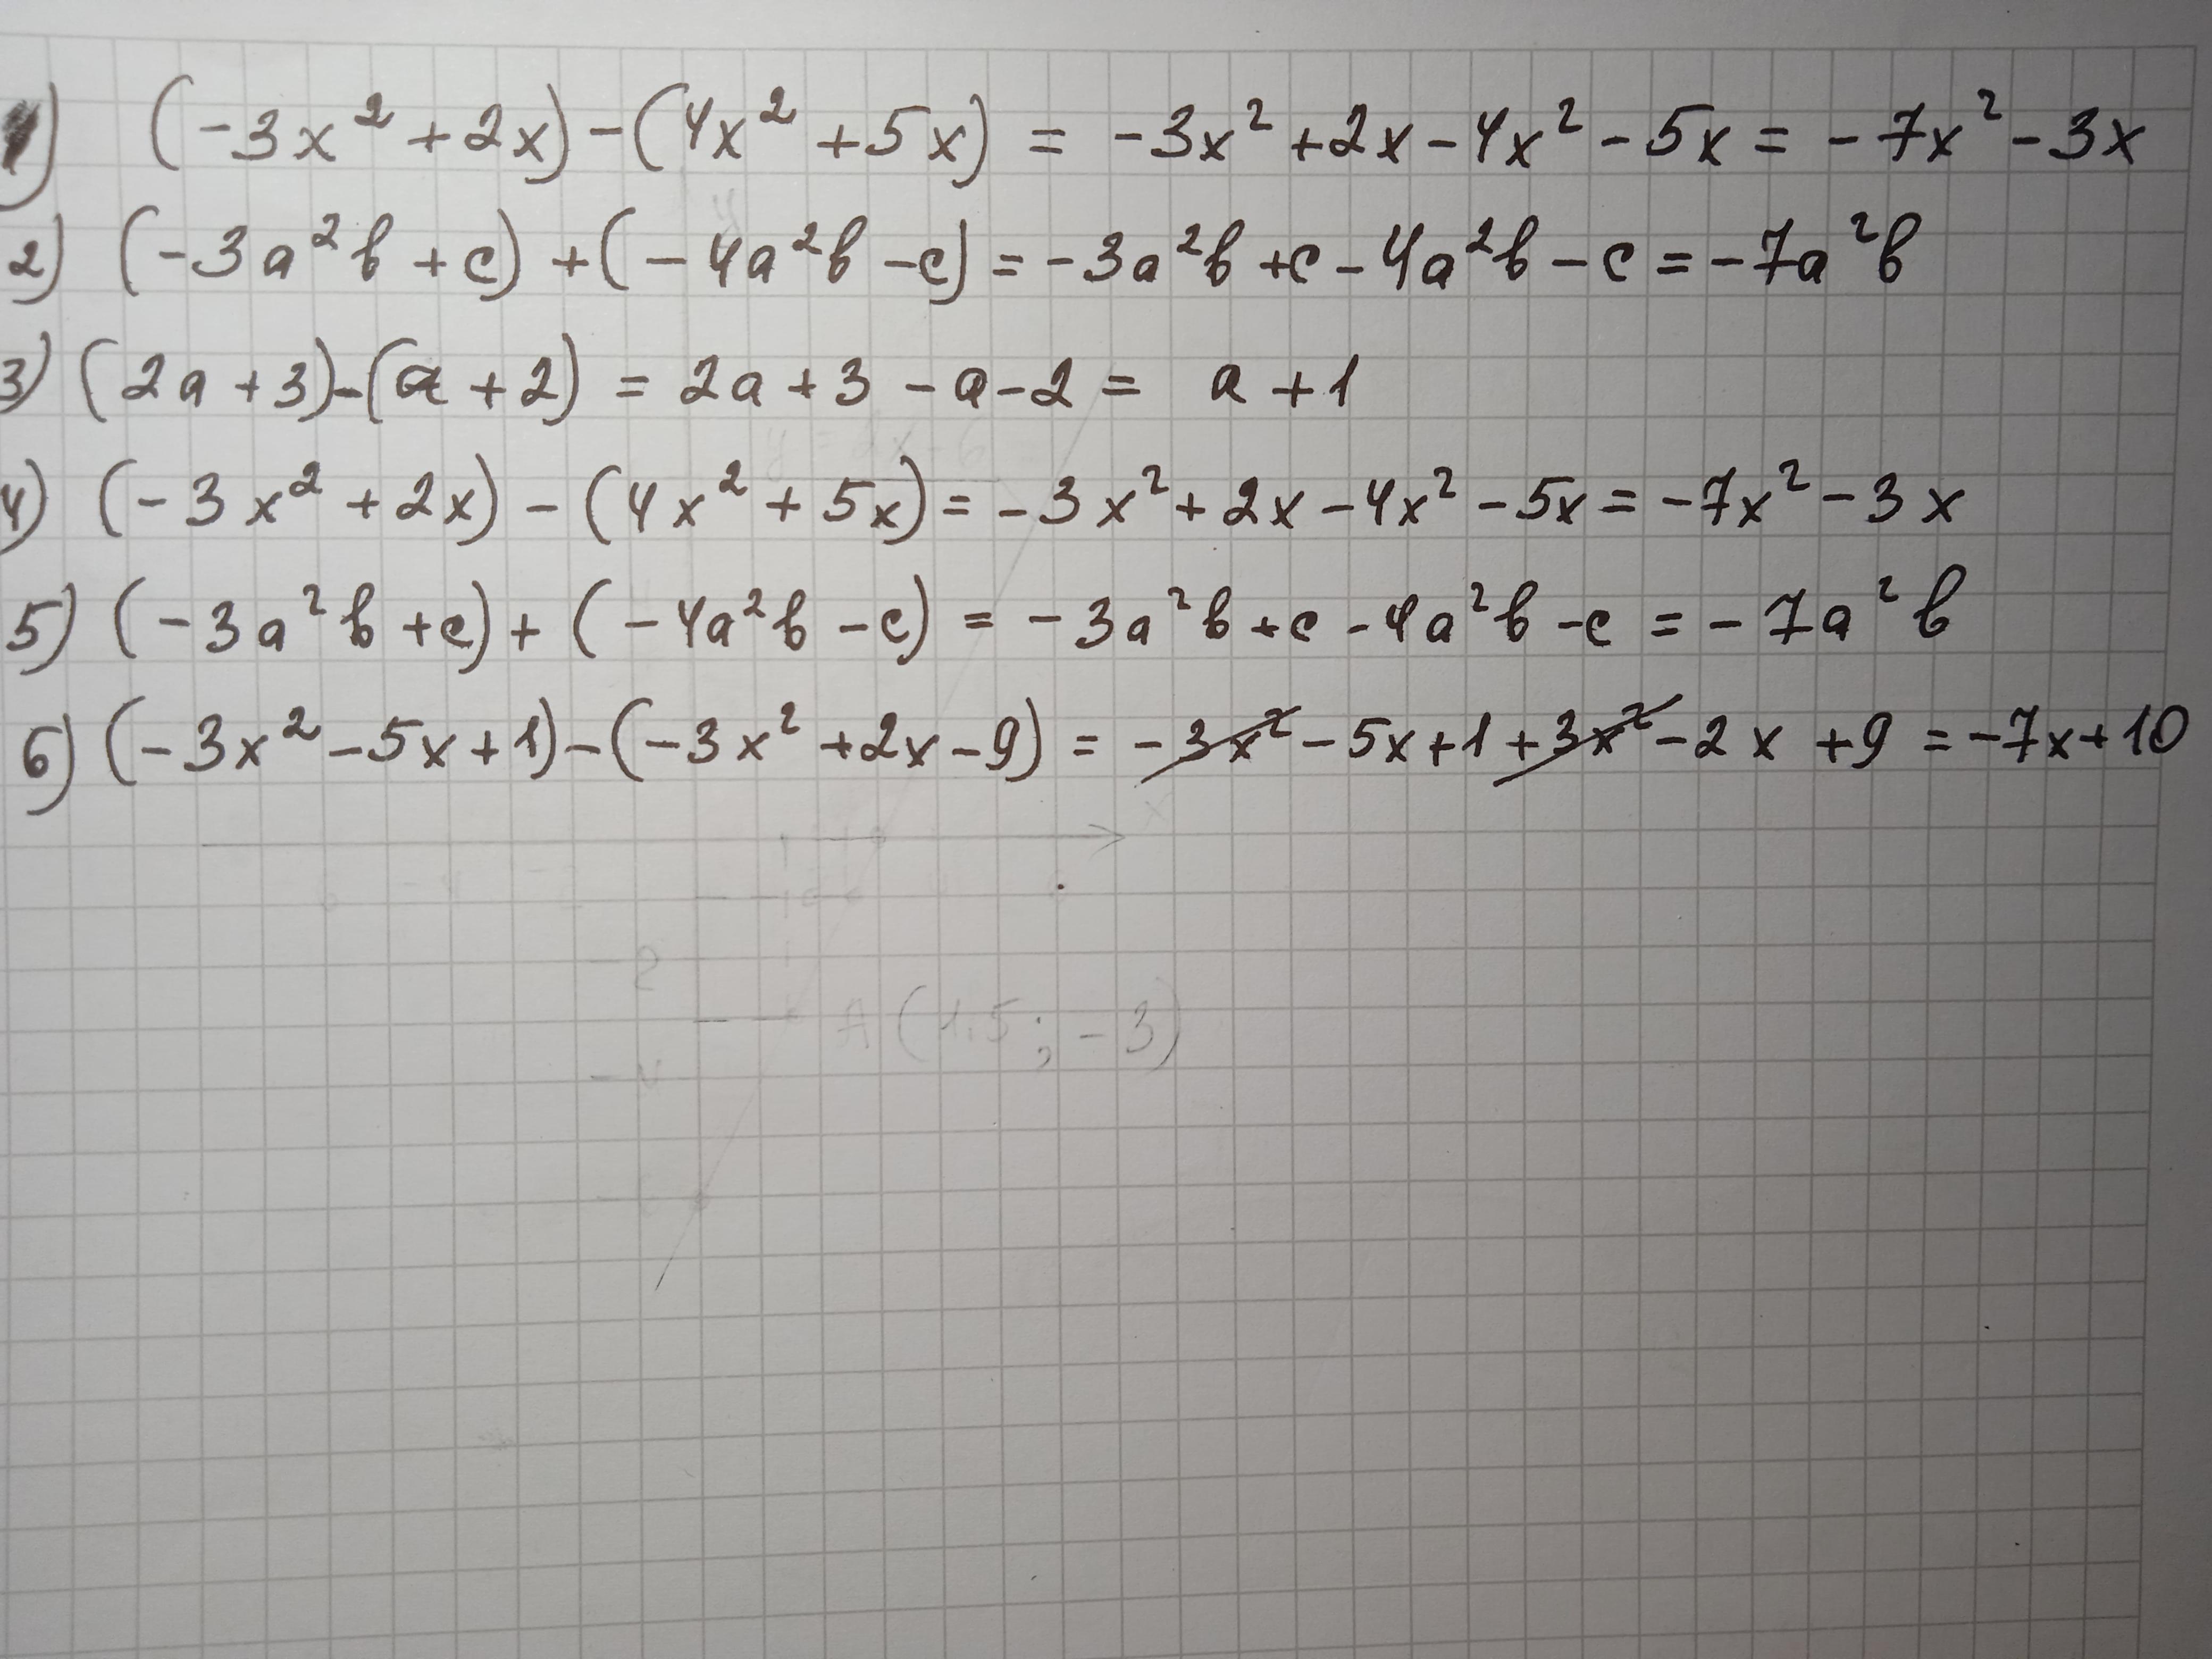 1) (-3x² + 2x) - (4x² + 5x) = -3x² + 2x - 4x² - 5x = -7x² - 3x
2) (-3a²b + c) + (-4a²b - c) = -3a²b + c - 4a²b - c = -7a²b
3) (2a + 3) - (a + 2) = 2a + 3 - a - 2 = a + 1
4) (-3x² + 2x) - (4x² + 5x) = -3x² + 2x - 4x² - 5x = -7x² - 3x
5) (-3a²b + c) + (-4a²b - c) = -3a²b + c - 4a²b - c = -7a²b
6) (-3x² - 5x + 1) - (-3x² + 2x - 9) = -3x² - 5x + 1 + 3x² - 2x + 9 = -7x + 10
A (1,5 ; -3)